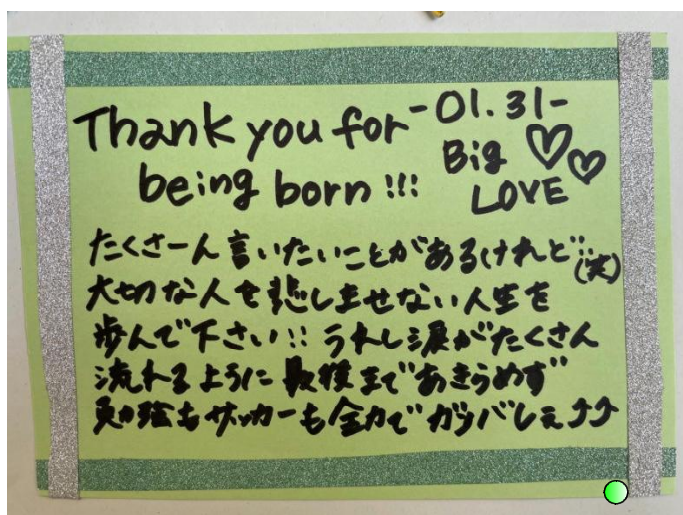 Thank you for
being born!!!
-01.31-
Big ♡♡
LOVE
たくさーん言いたいことがあるけれど…(笑)
大切な人を悲しませない人生を
歩んで下さい!!うれし涙がたくさん
流れるように最後まであきらめず
勉強もサッカーも全力でガンバレぇ⤴⤴